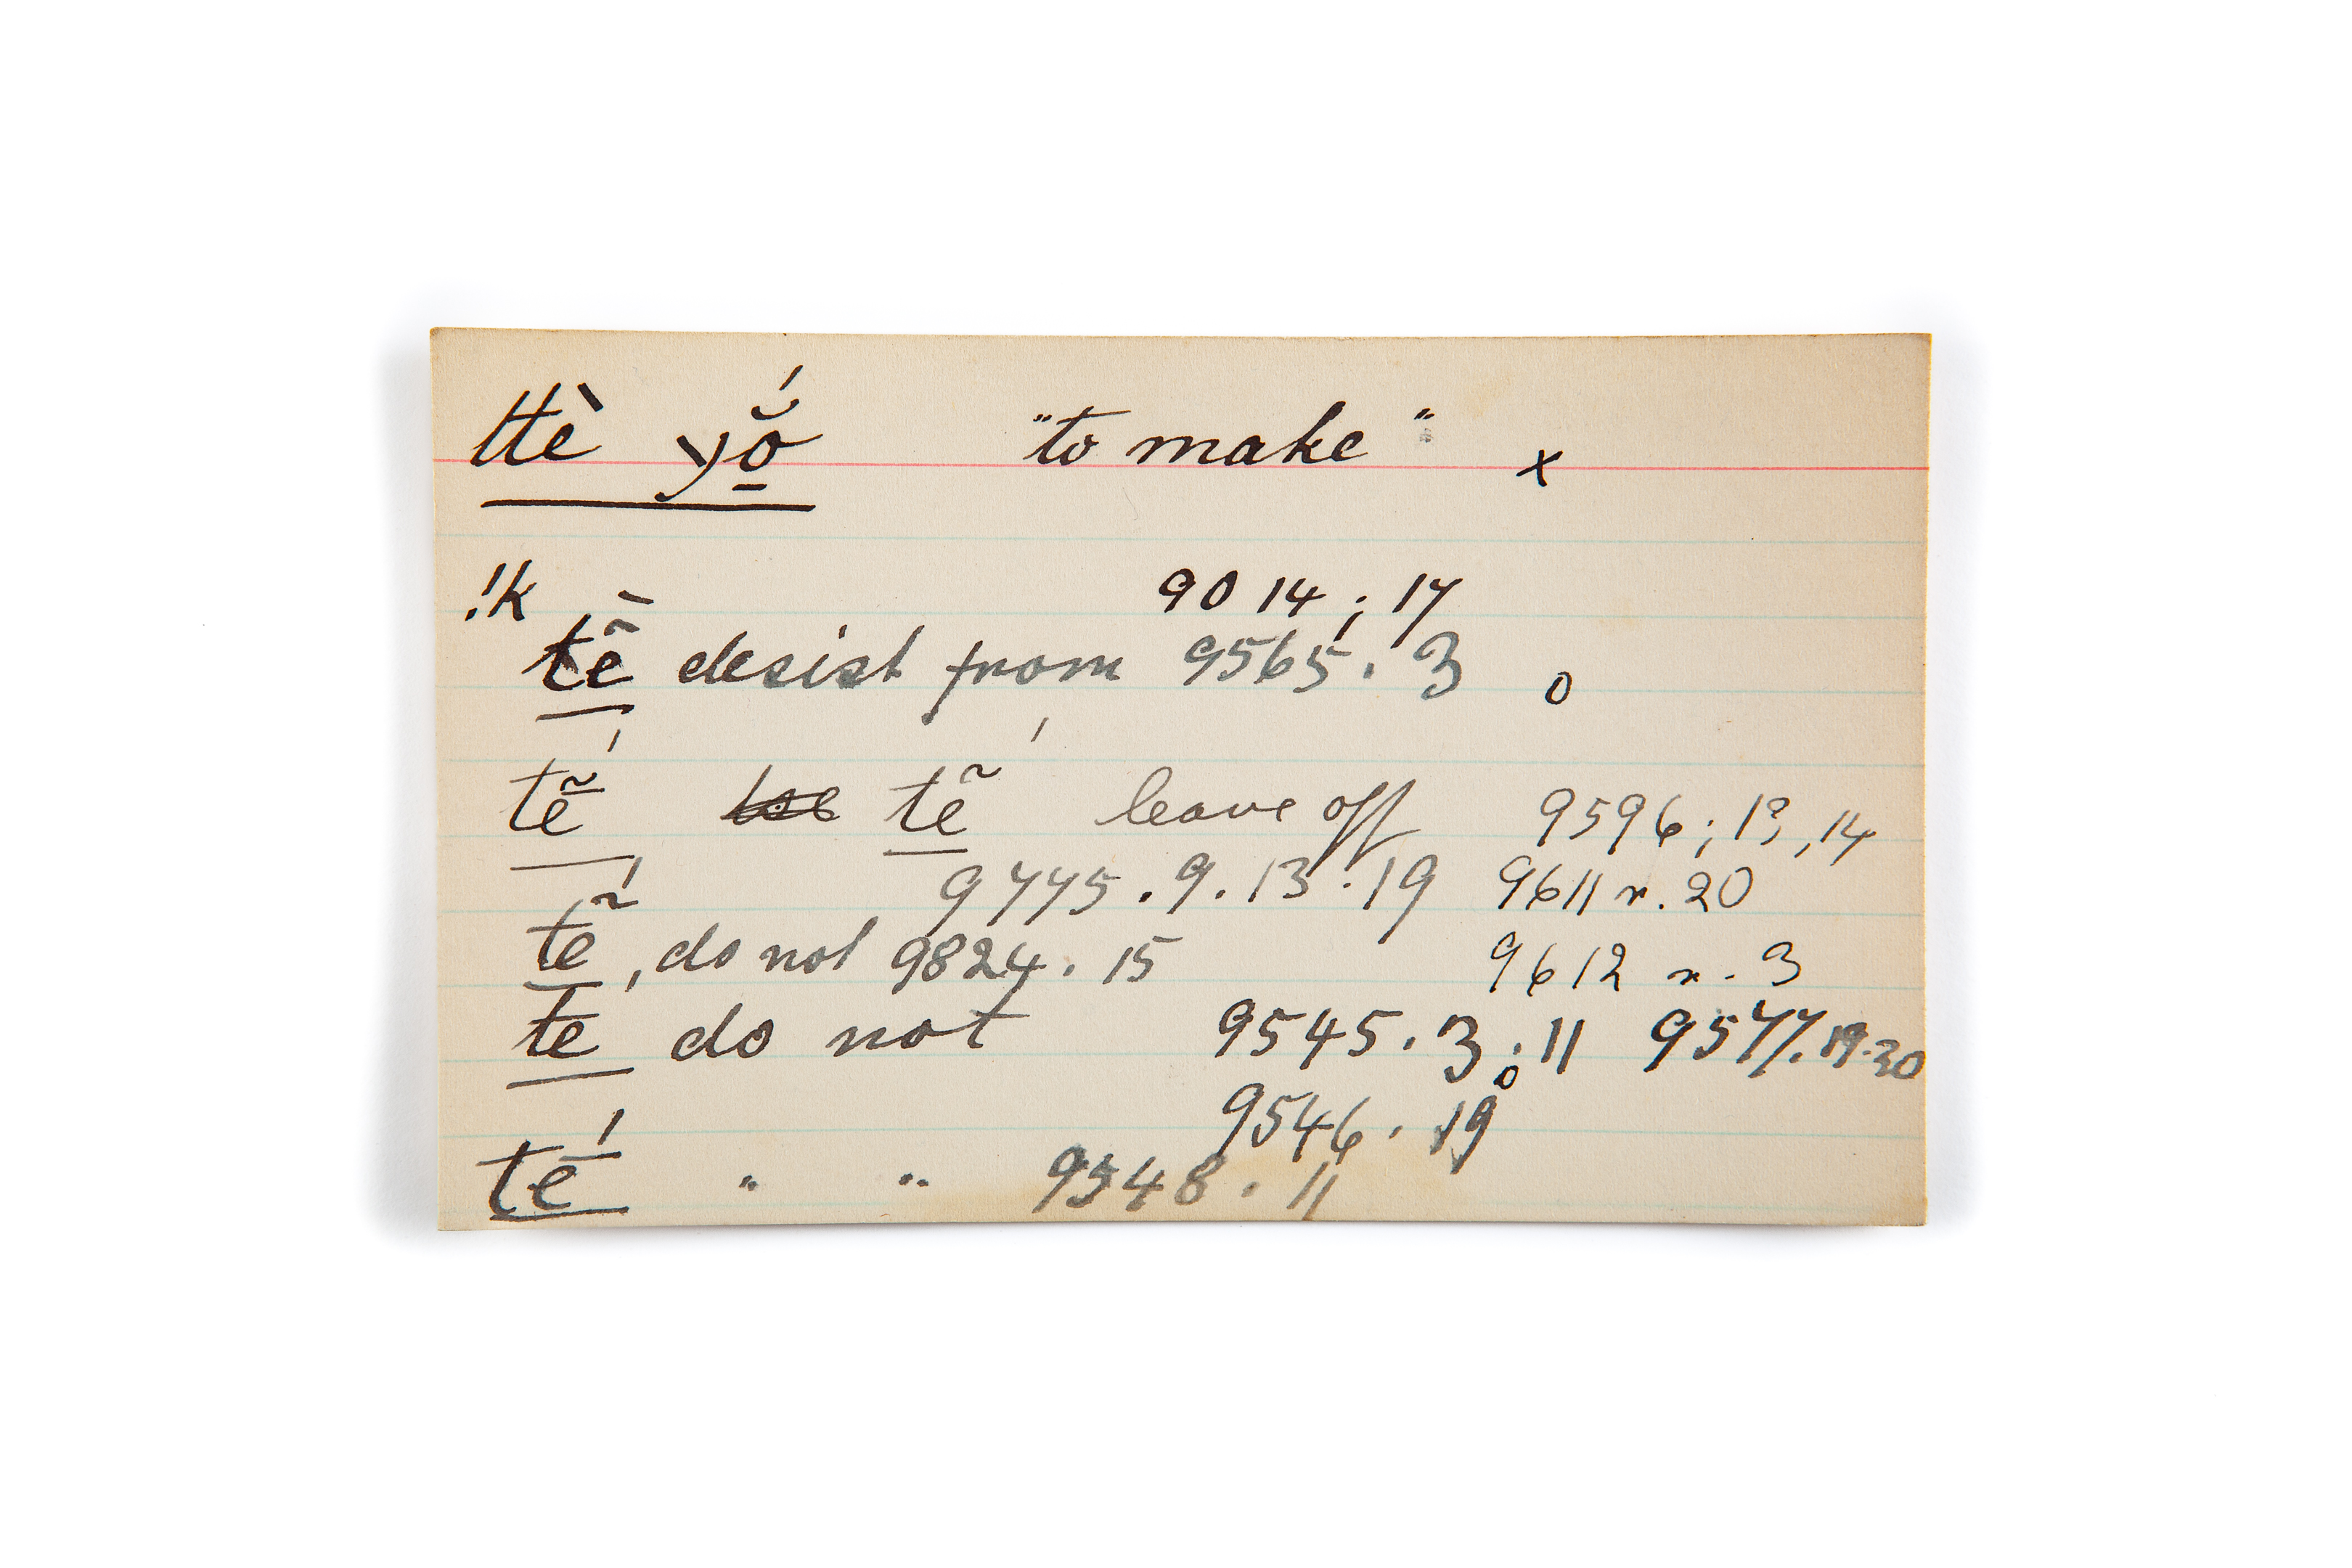 ttè yṓ̆ "to make" x
!k 9014; 17
tẽ̄ desist from 9565. 3 o
tẽ̄́ tẽ́ leave off 9596; 13, 14
9775. 9. 13. 19 9611 r. 20
tẽ́, do not 9824. 15 9612 r. 3
te do not 9545. 3; 11 9577. 19.20
o
9546. 19
tḗ " " 9548. 11